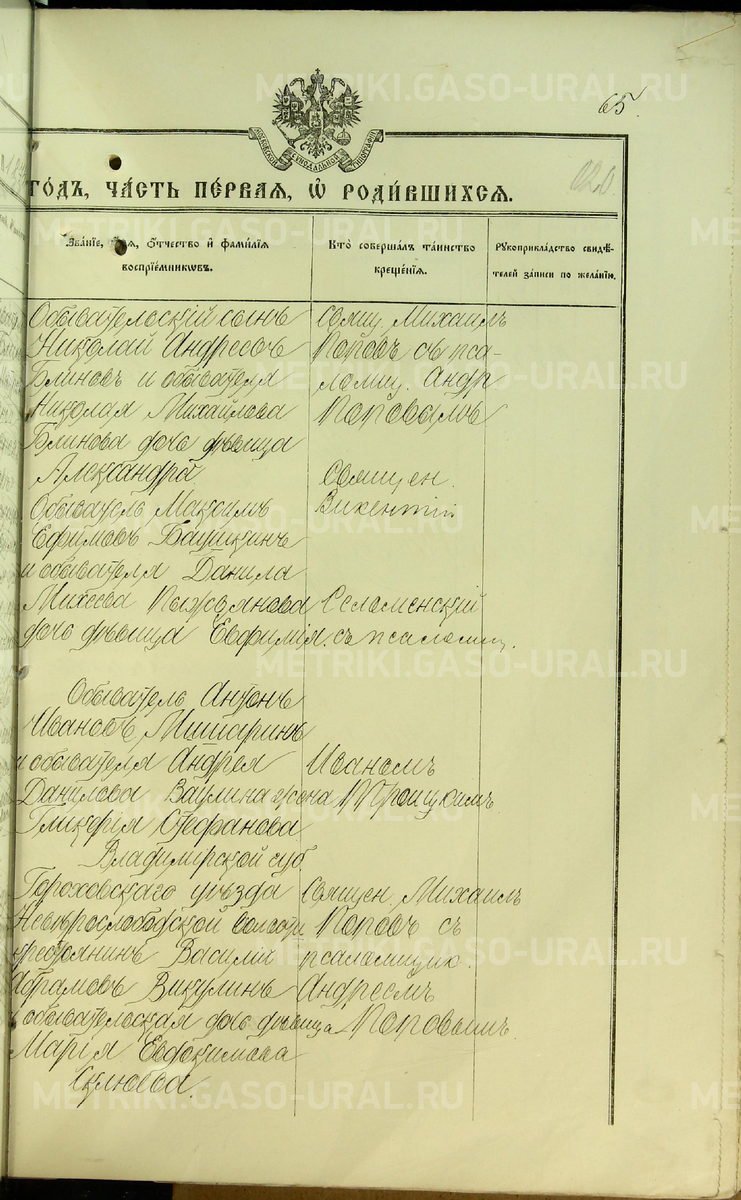 65.
МОСКОВСКОЙ СѴНОДАЛЬНОЙ ТИПОГРАФІИ
ГОДЪ, ЧАСТЬ ПЕРВАЯ, Ѡ РОДИВШИХСЯ.
Званіе, имя, отчество и фамилія воспріемниковъ.
Кто совершалъ таинство крещенія.
Рукоприкладство свидѣтелей записи по желанію.
Обывательскій сынъ
Николай Андреевъ
Блиновъ и обывателя
Николая Михайлова
Блинова дочь дѣвица
Александра
Обыватель Максимъ
Ефимовъ Баушкинъ
и обывателя Данила
Михеева
дочь дѣвица Евфимія.
Обыватель Антонъ
Ивановъ Мишаринъ
и обывателя Андрея
Данилова Ваулина жена
Гликерія Стефанова
Владимірской губ.
Гороховскаго уѣзда
волости
крестьянинъ Василій
Абрамовъ Викулинъ
и обывательская дочь дѣвица
Марія Евдокимова
Склюева.
Свящ. Михаилъ
Поповъ съ пса-
ломщ. Андр
Поповымъ
Священ.
Викентій
Селаменскій
съ псаломщ.
Иваномъ
Троицкимъ
Священ. Михаилъ
Поповъ съ
псаломщико
Андреемъ
Поповымъ.
METRIKI.GASO-URAL.RU